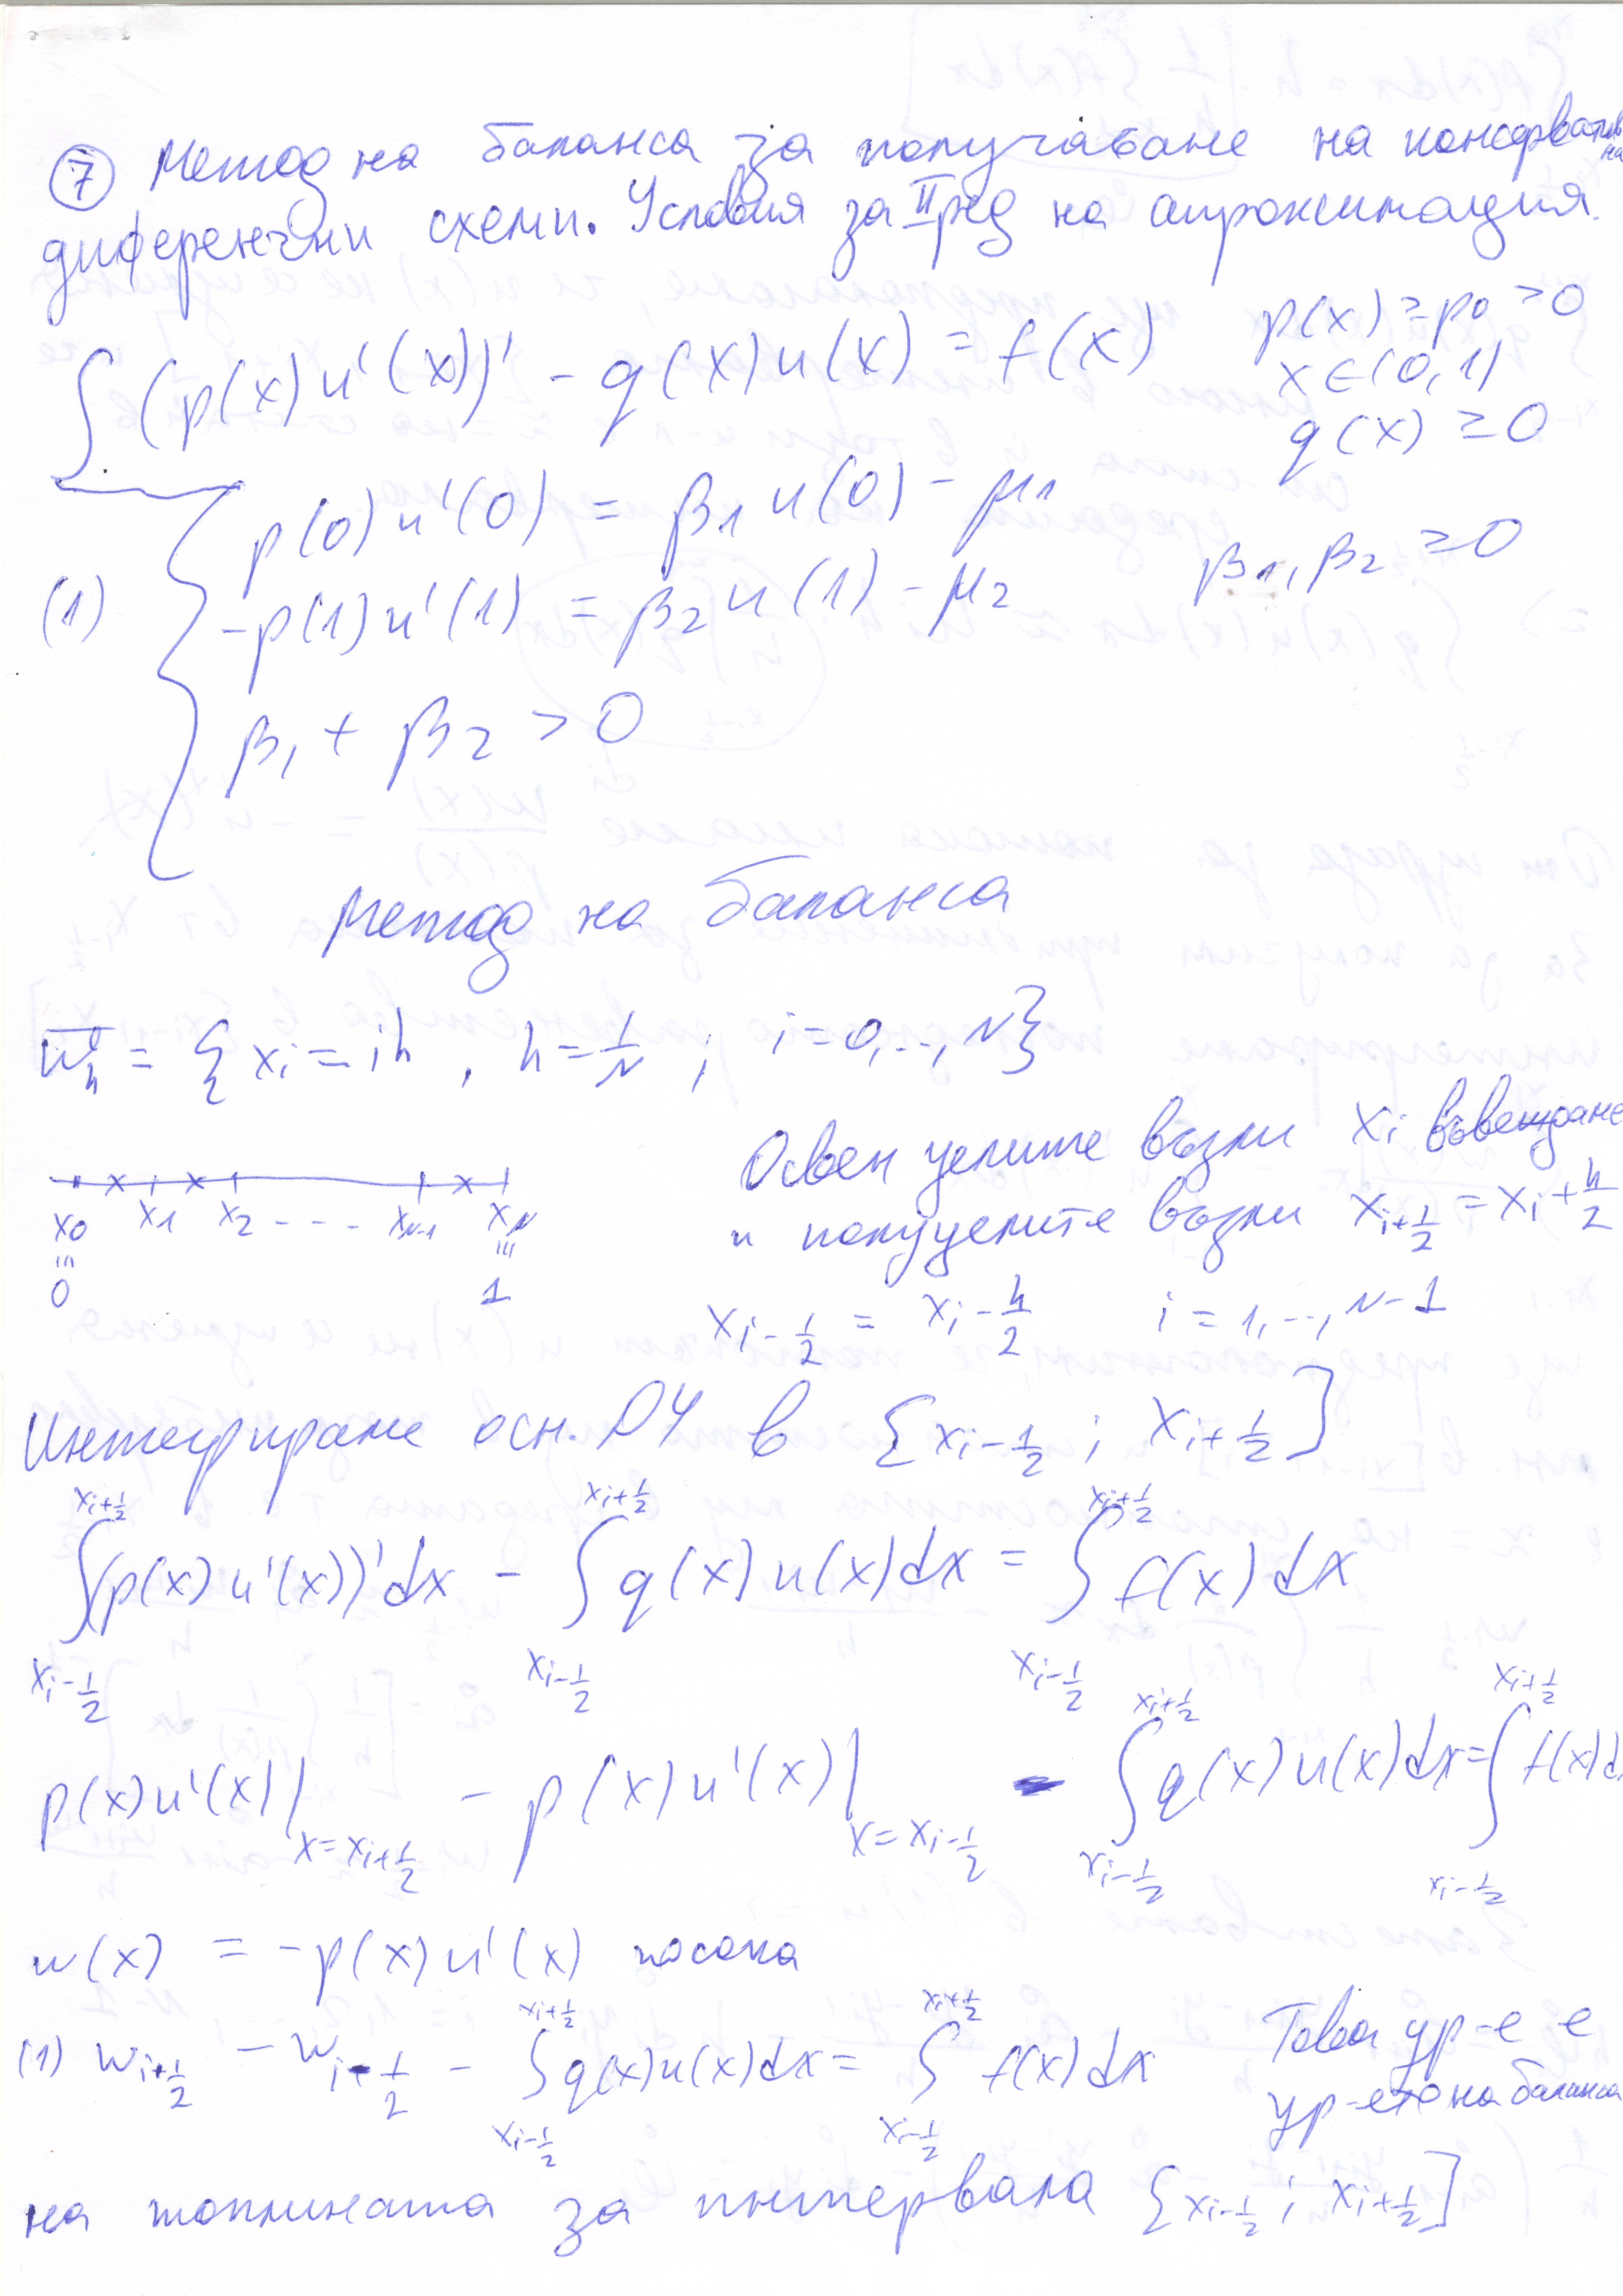 ⑦ Метод на баланса за получаване на консерватив
на
диференчни схеми. Условия за II ред на апроксимация.
(p(x)u'(x))' - q(x)u(x) = f(x)
p(x) ≥ p0 > 0
x ∈ (0,1)
q(x) ≥ 0
p(0)u'(0) = β1 u(0) - μ1
(1) -p(1)u'(1) = β2 u(1) - μ2
β1, β2 ≥ 0
β1 + β2 > 0
Метод на баланса
w̄h = { xi = ih , h = 1/N ; i = 0,..,N}
Освен целите възли xi въвеждаме
и полуцелите възли x_{i+1/2} = xi + h/2
x0 x1 x2 - - - . xN-1 xN
≡ ≡
0 1
x_{i-1/2} = xi - h/2 i = 1,..,N-1
Интегрираме осн. ДУ в [x_{i-1/2} ; x_{i+1/2}]
∫_{x_{i-1/2}}^{x_{i+1/2}} (p(x)u'(x))'dx - ∫_{x_{i-1/2}}^{x_{i+1/2}} q(x)u(x)dx = ∫_{x_{i-1/2}}^{x_{i+1/2}} f(x)dx
p(x)u'(x)|_{x=x_{i+1/2}} - p(x)u'(x)|_{x=x_{i-1/2}} - ∫_{x_{i-1/2}}^{x_{i+1/2}} q(x)u(x)dx = ∫_{x_{i-1/2}}^{x_{i+1/2}} f(x)d
w(x) = -p(x)u'(x) посока
(1) w_{i+1/2} - w_{i-1/2} - ∫_{x_{i-1/2}}^{x_{i+1/2}} q(x)u(x)dx = ∫_{x_{i-1/2}}^{x_{i+1/2}} f(x)dx
Това ур-е е
ур-ето на баланса
на топлината за интервала [x_{i-1/2} ; x_{i+1/2}]